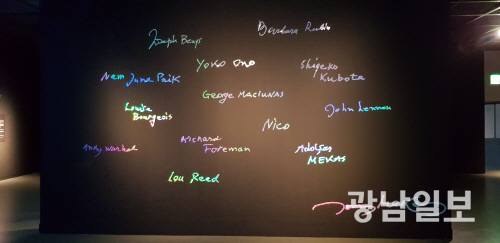 Joseph Beuys
Barbara Rubin
Yoko Ono
Shigeko
Kubota
Nam June Paik
George Maciunas
Louise
Bourgeois
John Lennon
Nico
Andy Warhol
Richard
Foreman
Adolfas
MEKAS
Lou Reed
광남일보